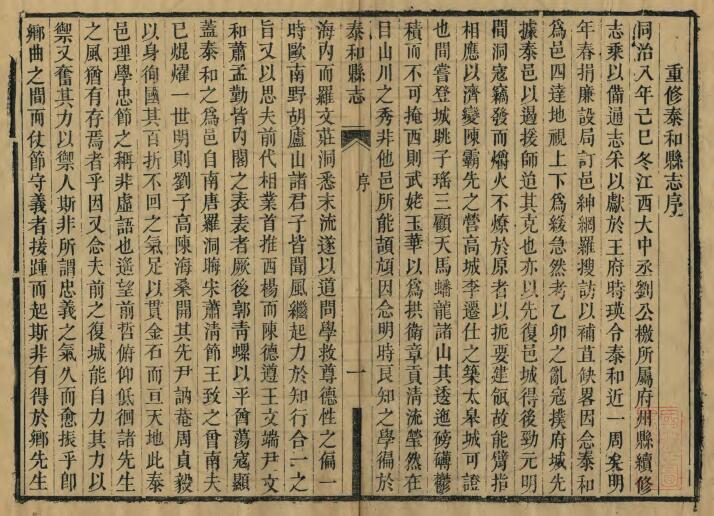 重修泰和縣志序
同治八年己巳冬江西大中丞劉公檄所屬府州縣續修
志乘以備通志采以獻於王府時瑛合泰和近一周矣明
年春捐廉設局訂邑紳網羅搜訪以補苴缺畧因念泰和
爲邑四達地視上下爲緩急然考乙卯之亂寇撲府城先
據泰邑以遏援師迨其克也亦以先復邑城得後勁元明
間洞寇竊發而爝火不燎於原者以扼要建瓴故能臂指
相應以濟變陳霸先之營高城李遷仕之築太皋城可證
也間嘗登城眺子瑤三顧天馬蟠龍諸山其逶迤磅礡鬱
積而不可掩西則武姥玉華以爲拱衛章貢清流瑩然在
目山川之秀非他邑所能頡頏因念明時良知之學徧於
泰和縣志
序
一
海內而羅文莊洞悉末流遂以道問學救尊德性之偏一
時歐南野胡廬山諸君子皆聞風繼起力於知行合一之
旨又以思夫前代相業首推西楊而陳德遵王文端尹文
和蕭孟勤皆內閣之表表者厥後郭青螺以平酋蕩寇顯
蓋泰和之爲邑自南唐羅洞晦宋蕭清節王致之曾南夫
已焜燿一世明則劉子高陳海桑開其先尹訥菴周貞毅
以身徇國其百折不回之氣足以貫金石而亘天地此泰
邑理學忠節之稱非虛語也遙望前哲俯仰低徊諸先生
之風猶有存焉者乎因又念夫前之復城能自力其力以
禦又奮其力以禦人斯非所謂忠義之氣久而愈振乎即
鄉曲之間而仗節守義者接踵而起斯非有得於鄉先生